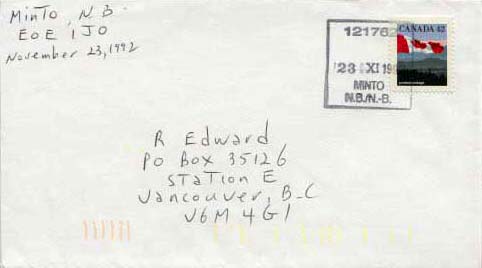 MinTo, N B
EOE 1JO
November 23, 1992
121762
23 XI 19
MINTO
N.B./N.-B.
CANADA 42
R Edward
Po Box 35126
STaTion E
Vancouver, B-C
V6M 4G1